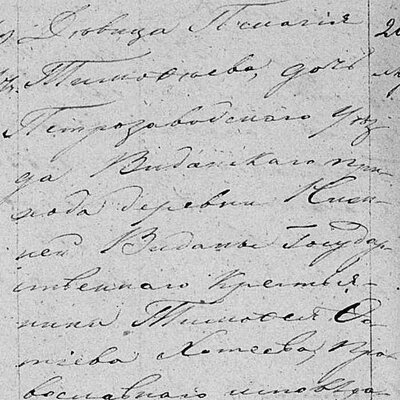 Дѣвица Пелагія
Тимоѳеева, дочь
Петрозаводскаго уѣз
да Виданскаго при
хода деревни Ниж
ней Виданы Государ
ственнаго крестья
нина Тимоѳея
Хотеева, пра
вославнаго исповѣда